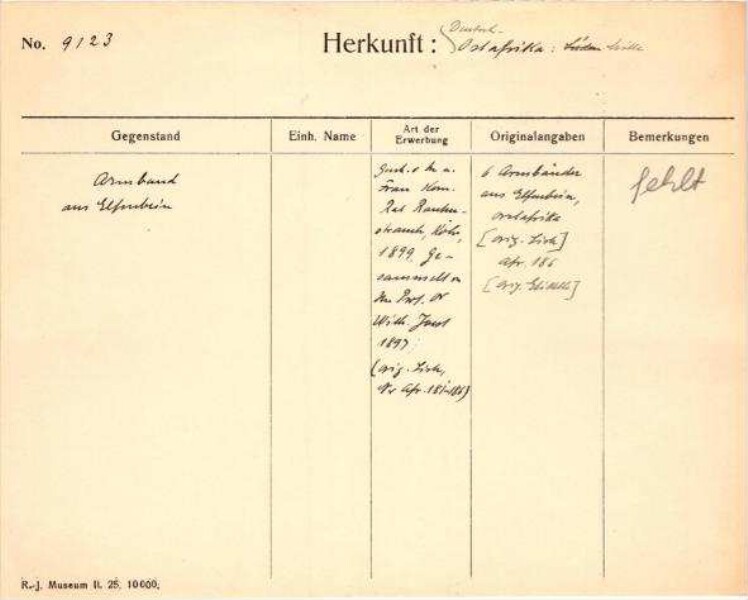 No. 9123
Herkunft: Deutsch-
Ostafrika:
Gegenstand
Einh. Name
Art der
Erwerbung
Originalangaben
Bemerkungen
Armband
aus Elfenbein
Gesch. v. Hn u.
Frau Kom.
Rat Rauten-
strauch, Köln,
1899, Ge-
sammelt v.
Hn Prof. Dr
Wilh. Joest
1897;
(orig. Liste,
Nr Afr. 181-186)
6 Armbänder
aus Elfenbein,
Ostafrika
[orig. Liste]
Afr. 186
[orig. Etikett]
fehlt
R.-J. Museum II. 25. 10000.